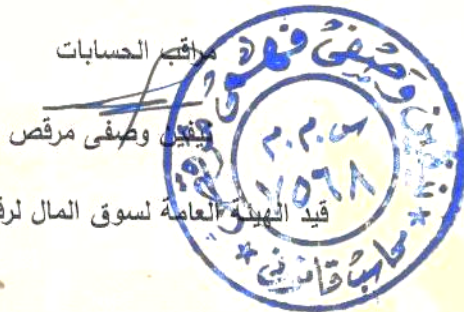 مراقب الحسابات
نيفين وصفى مرقص
قيد الهيئة العامة لسوق المال لرق
نيفين وصفى فهمى مرقص
س.م.م
٧٥٦٨
* محاسب قانونى *